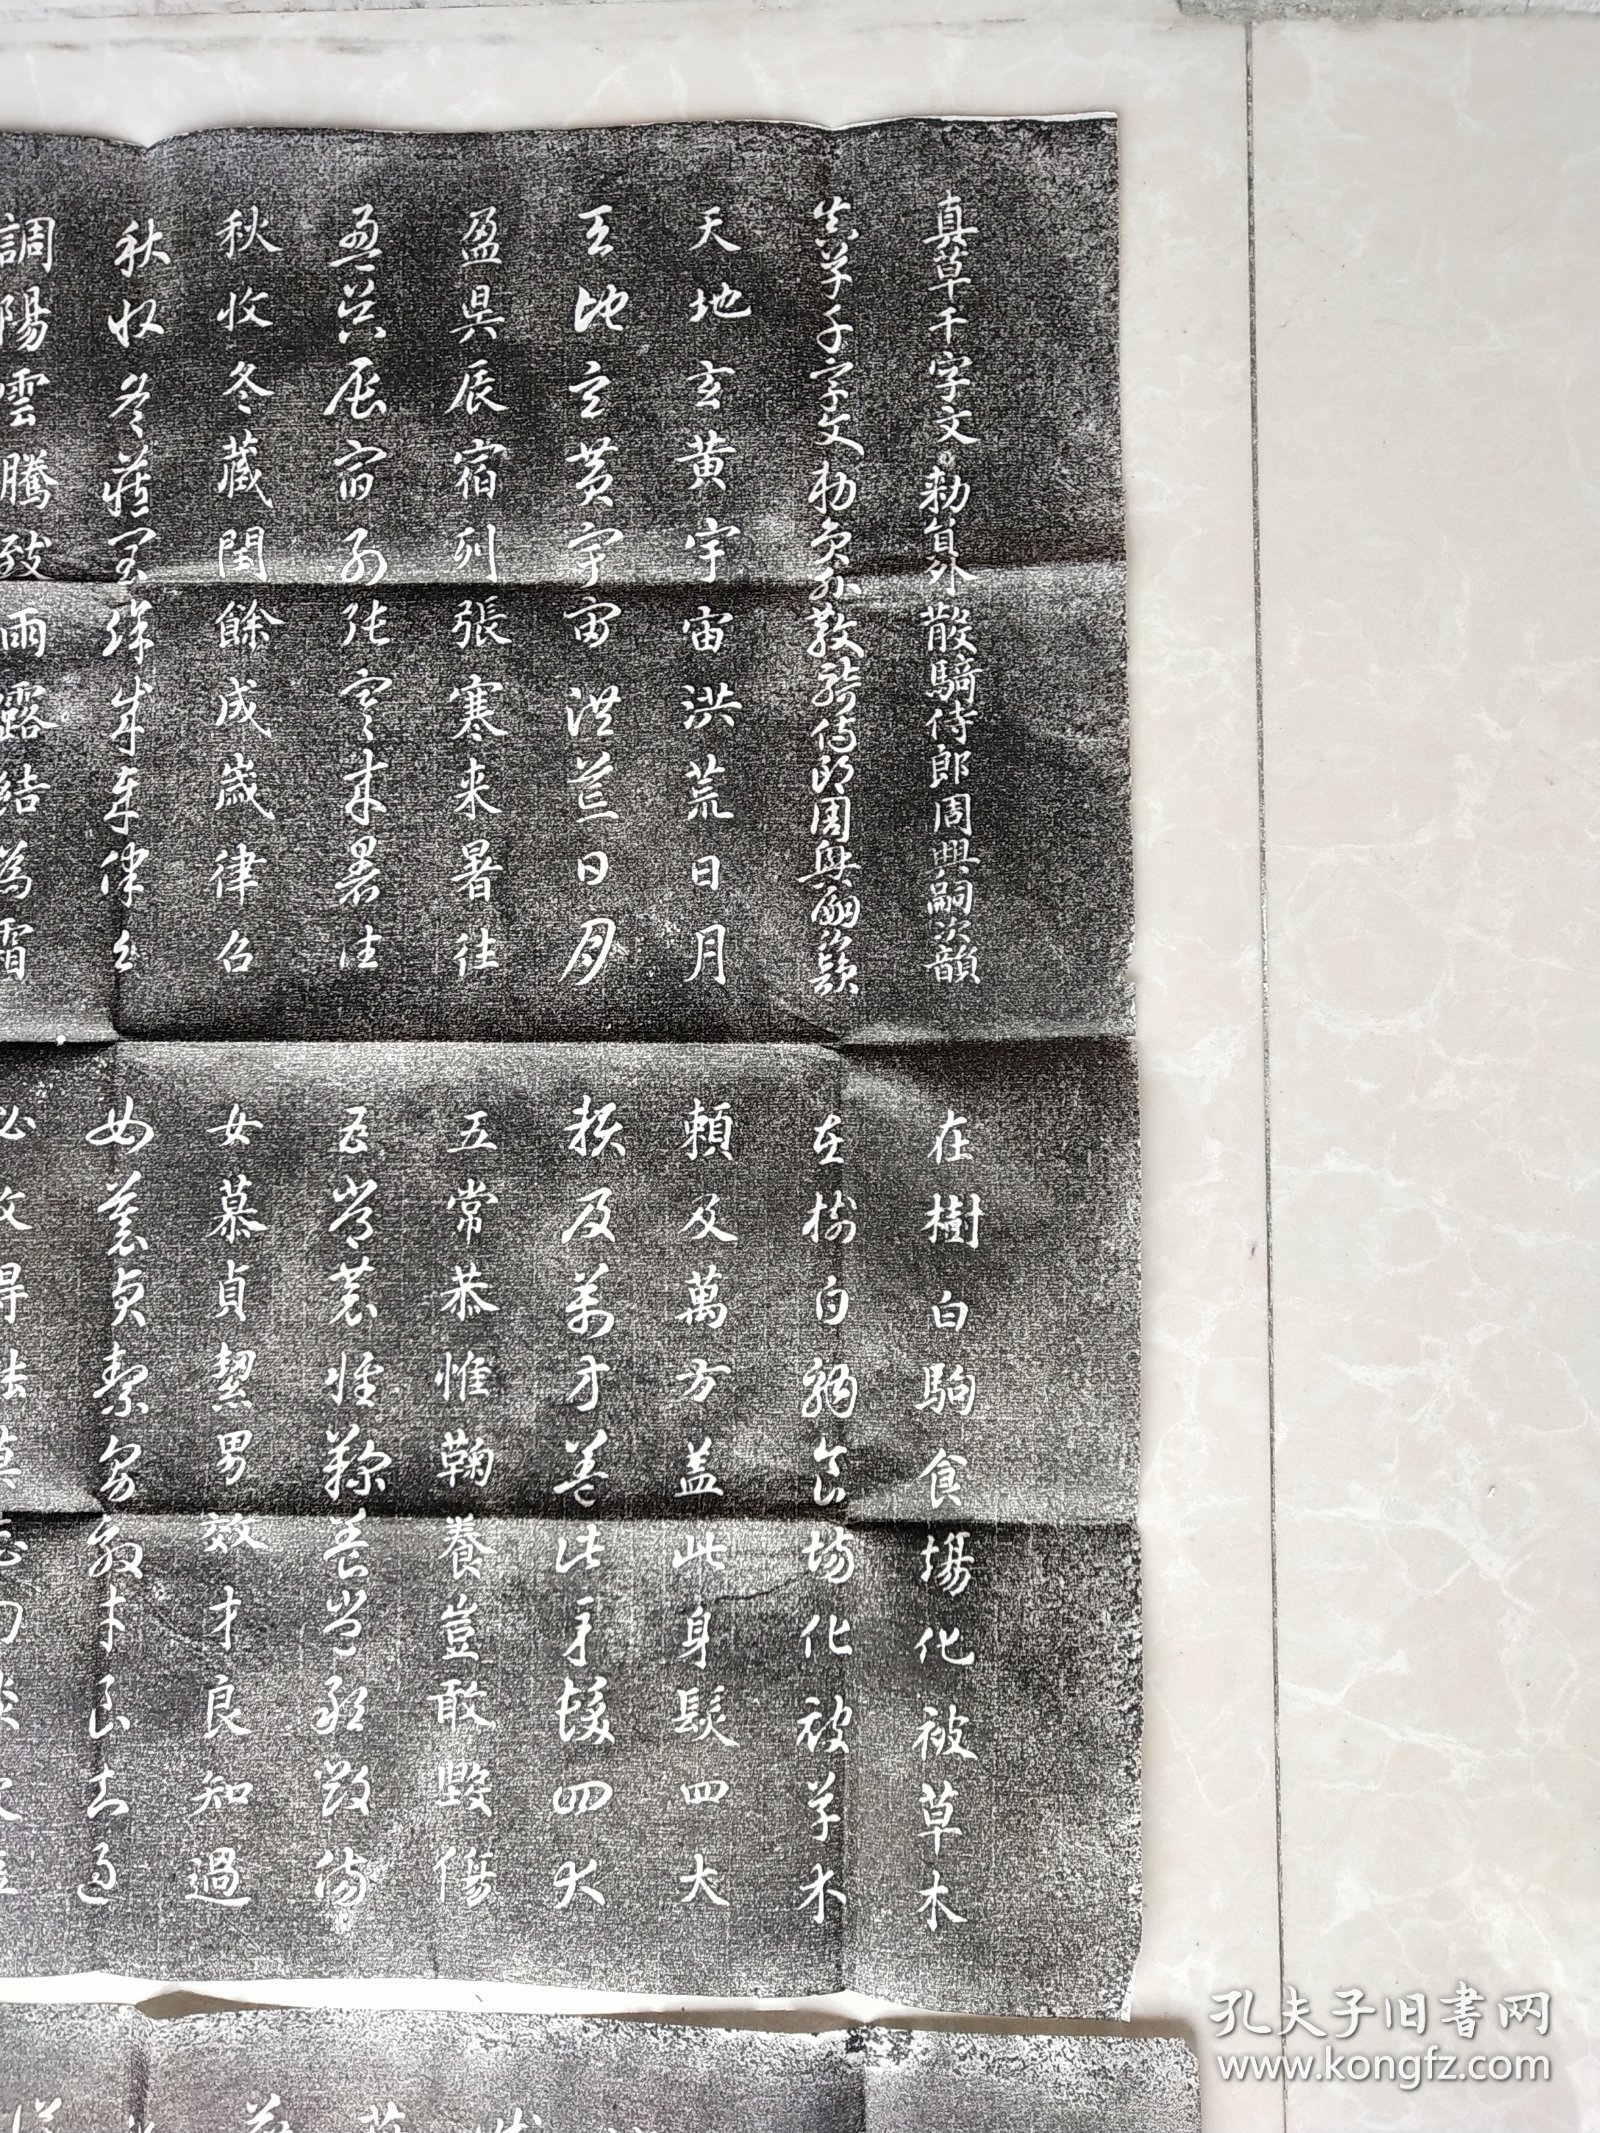 真草千字文 勅負外散騎侍郎周興嗣次韻
真草千字文勅負外散騎侍郎周興嗣次韻
天地玄黄宇宙洪荒日月
天地玄黄宇宙洪荒日月
盈昃辰宿列張寒来暑往
盈昃辰宿列張寒来暑往
秋收冬藏閏餘成歲律召
秋收冬藏閏餘成歲律召
調陽雲騰致雨露結為霜
在樹白駒食場化被草木
在樹白駒食場化被草木
賴及萬方盖此身髮四大
賴及萬方盖此身髮四大
五常恭惟鞠養豈敢毀傷
五常恭惟鞠養豈敢毀傷
女慕貞絜男效才良知過
女慕貞絜男效才良知過
必改得
孔夫子旧書网
www.kongfz.com